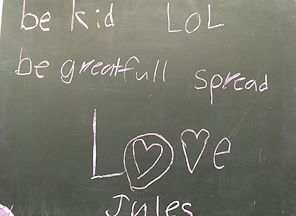 be kid LOL
be greatfull spread
L♡♡e
Jules